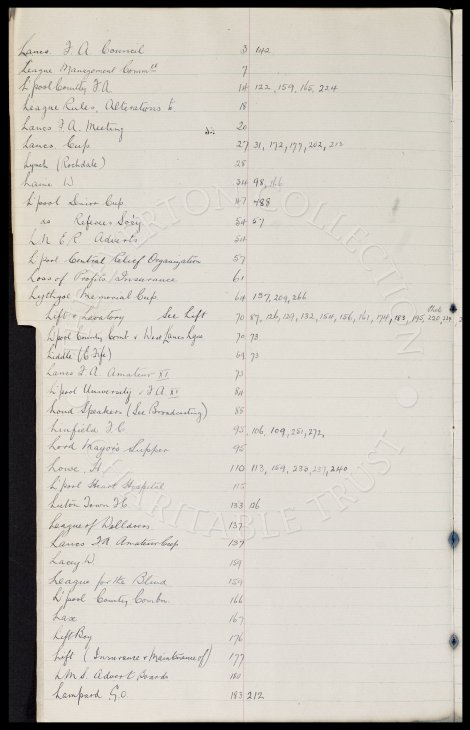 Lancs. F. A. Council 3 142
League Management Commtt 7
L'pool County F.A. 14 122, 159, 165, 224
League Rules, Alterations to 18
Lancs F.A. Meeting 20
Lancs. Cup 27 31, 172, 177, 202, 212
Lynch (Rochdale) 28
W 34 98, 166
L'pool Senior Cup 47 488
do Referees Socy 54 57
L.N.E.R. Adverts 54
L'pool Central Relief Organization 57
Loss of Profits Insurance 61
Lythgoe Memorial Cup 64 157, 209, 266
Lift & Lavatory See Lift 70 87, 126, 129, 132, 154, 156, 161, 174, 183, 195, 220
L'pool County Comb. & West Lancs Lgue 70 73
Liddle (E. Fife) 69 73
Lancs F.A. Amateur XI 73
L'pool University v F.A. XI 84
Loud Speakers (See Broadcasting) 85
Linfield F.C. 95 106, 109, 251, 272,
Lord Mayor's Supper 95
Lowe, H. 110 113, 159, 230, 237, 240
L'pool Heart Hospital 115
Luton Town F.C. 133 136
League of Welldoers 137
Lancs F.A. Amateur Cup 137
Lacey W 159
League for the Blind 159
L'pool County Combn. 166
Lax 167
Lift Boy 176
Lift (Insurance & Maintenance of) 177
L.M.S. Advert Boards 180
Lampard G.O. 183 212
EVERTON COLLECTION
CHARITABLE TRUST